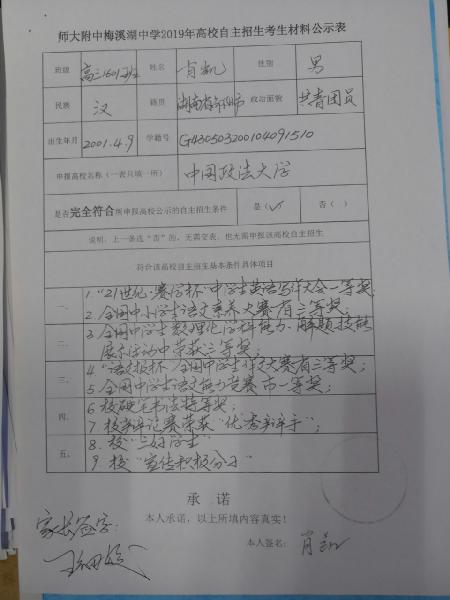 师大附中梅溪湖中学2019年高校自主招生考生材料公示表
班级 高三1601班 姓名 肖凯 性别 男
民族 汉 籍贯 湖南省邵阳市 政治面貌 共青团员
出生年月 2001.4.9 学籍号 G430503200104091510
申报高校名称（一表只填一所） 中国政法大学
是否完全符合所申报高校公示的自主招生条件 是（√） 否（ ）
说明：上一条选“否”的，无需交表，也无需申报该高校自主招生
符合该高校自主招生基本条件具体项目
一、 1.“21世纪·赛学杯”中学生英语写作大会一等奖；
2.全国中小学生语文素养大赛省三等奖；
二、 3.全国中学生数理化学科能力解题技能
展示活动中荣获三等奖；
三、 4.“语文报杯”全国中学生作文大赛省三等奖；
5.全国中学生语文能力竞赛市一等奖；
四、 6.校硬笔书法特等奖；
7.校辩论赛荣获“优秀辩手”；
五、 8.校“三好学生”
9.校“宣传积极分子”
承 诺
本人承诺，以上所填内容真实！
家长签字：
本人签名： 肖凯